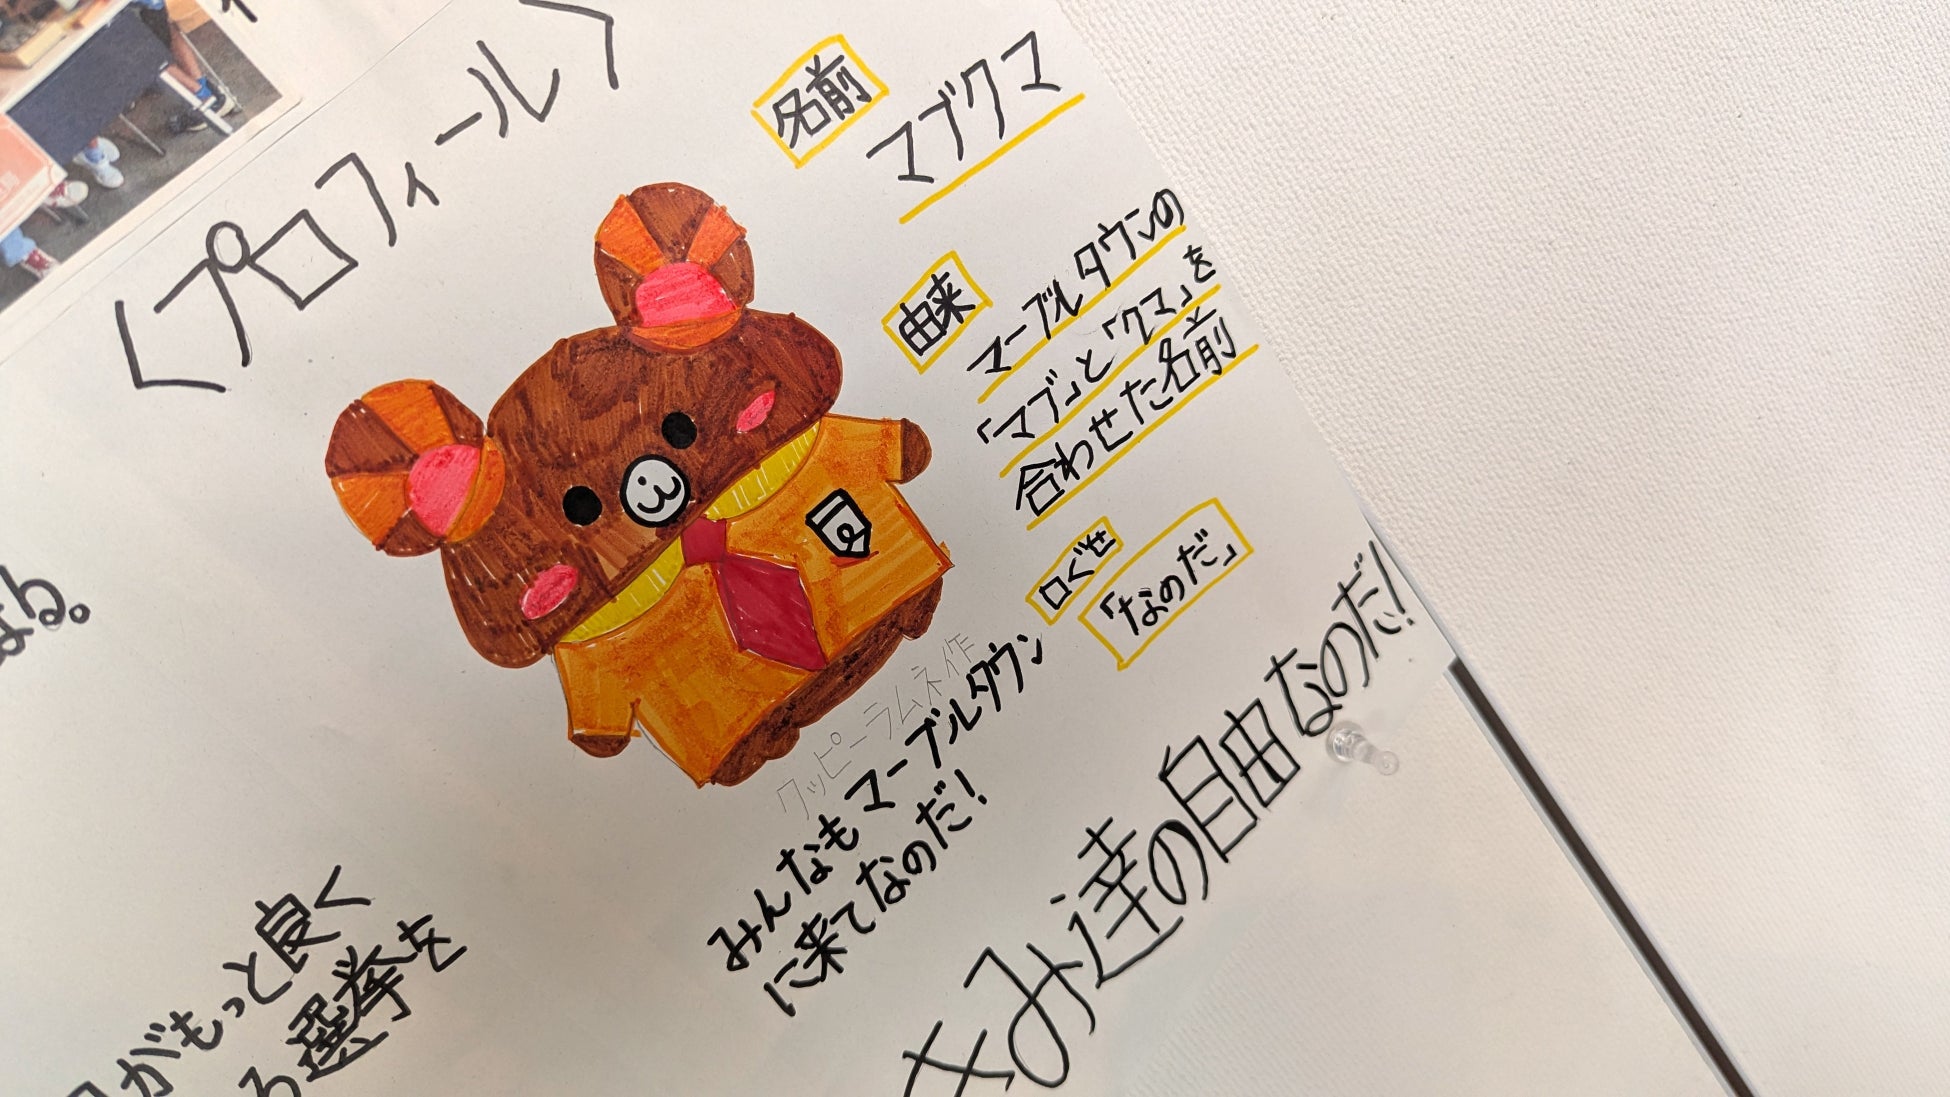 〈プロフィール〉
名前
マブクマ
由来
マーブルタウンの
「マブ」と「クマ」を
合わせた名前
口ぐせ
「なのだ」
クッピーラムネ作
みんなもマーブルタウン
に来てなのだ！
きみ達の自由なのだ！
なる。
がもっと良く
る選挙を